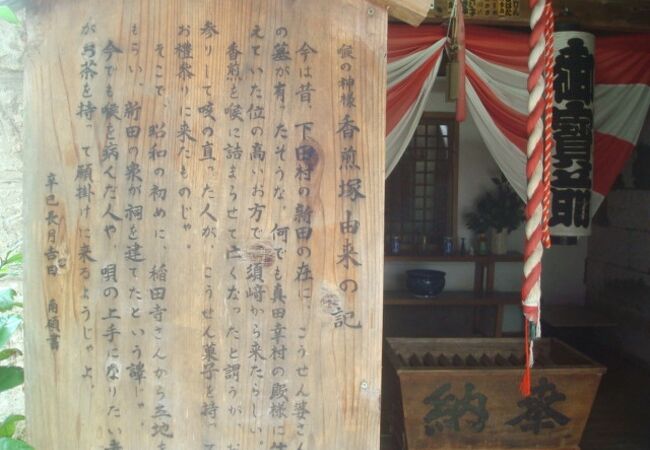 喉の神様 香煎塚由来の記
今は昔、下田村の新田の在に、こうせん婆さん
の墓が有ったそうな。何でも真田幸村の殿様に仕
えていた位の高いお方で、須崎から来たらしい。
香煎を喉に詰まらせて亡くなったと謂うが、お
参りして咳の直った人が、こうせん菓子を持って
お禮参りに来たものじゃ。
そこで、昭和の初めに、稲田寺さんから土地を
もらい、新田の衆が祠を建てたという譯じゃ。
今でも喉を病んだ人や、唄の上手になりたい
がお茶を持って願掛けに来るようじゃよ。
辛巳長月吉日
奉納